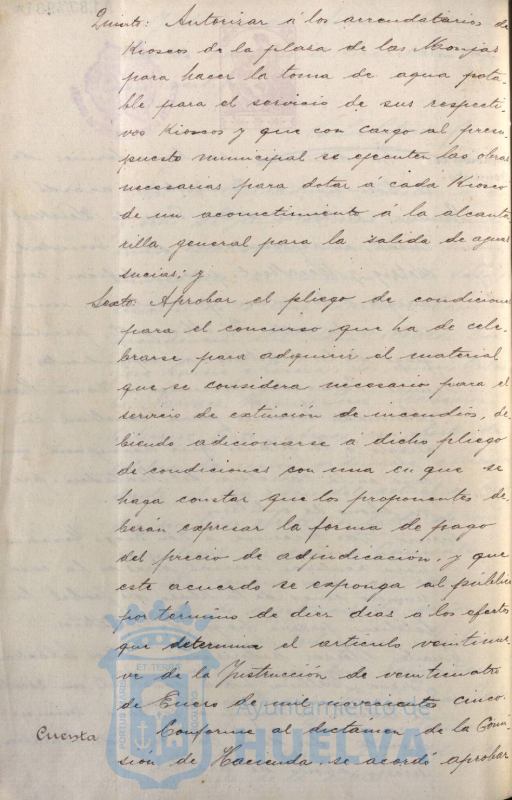 Quinto: Autorizar á los arrendatarios de
Kioscos de la plaza de las Monjas
para hacer la toma de agua pota-
ble para el servicio de sus respecti-
vos Kioscos y que con cargo al presu-
puesto municipal se ejecuten las obras
necesarias para dotar á cada Kiosco
de un acometimiento á la alcanta
rilla general para la salida de aguas
sucias; y
Sexto: Aprobar el pliego de condiciones
para el concurso que ha de cele-
brarse para adquirir el material
que se considera necesario para el
servicio de extinción de incendios, de-
biendo adicionarse á dicho pliego
de condiciones con una en que se
haga constar que los proponentes de-
berán expresar la forma de pago
del precio de adjudicación, y que
este acuerdo se exponga al público
por termino de diez dias á los efectos
que determina el articulo veintinue-
ve de la Instrucción de veinticuatro
de Enero de mil novecientos cinco.
Cuenta Conforme al dictamen de la Comi-
sión de Hacienda se acordó aprobar
PORTUS MARIS
ET TERRÆ
CUSTODIA
Ayuntamiento de
HUELVA